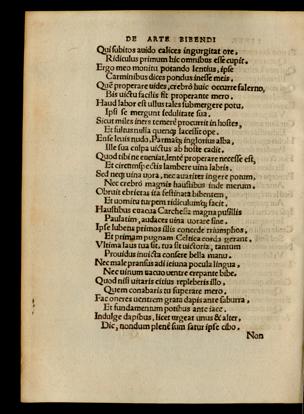 DE ARTE BIBENDI
Qui subitos auido calices ingurgitat ore,
Ridiculus primum hic omnibus esse cupit.
Ergo meo monitu potando lentius, ipse
Carminibus dices pondus inesse meis.
Quē properare uides, crebrò huic occurre falerno,
Bis uictu facilis fit properante mero.
Haud labor est ullus tales submergere potu,
Ipsi se mergunt sedulitate sua.
Sicut miles iners temerè procurrit in hostes,
Et fultus nulla quemq; lacessit ope.
Ense leuis nudo, Parmaq; inglorius alba,
Ille sua culpa uictus ab hoste cadit.
Quod tibi ne eueniat, lentè properare necesse est,
Et circumspectis lambere uina labris.
Sed neq; uina uora, nec auariter ingere potum,
Nec crebro magnis haustibus inde merum.
Obruit ebrietas sua festinata bibentem,
Et uomitu turpem ridiculumq; facit.
Haustibus euacua Carchesia magna pusillis
Paulatim, audaces uina uorare sine.
Ipse lubens primos illis concede triumphos,
Et primam pugnam Celtica corda gerant.
Vltima laus tua sit, tua sit uictoria, tantum
Prouidus inuicta consere bella manu.
Nec male pransus adi ieiuna pocula lingua,
Nec uinum uacuo uentre crepante bibe.
Quod nisi uitaris citius repleberis illo,
Quem conabaris tu superare mero.
Fac oneres uentrem grata dapis ante saburra,
Et fundamentum potibus ante iace.
Indulge dapibus, licet urgeat unus & alter,
Dic, nondum plenè sum satur ipse cibo.
Non